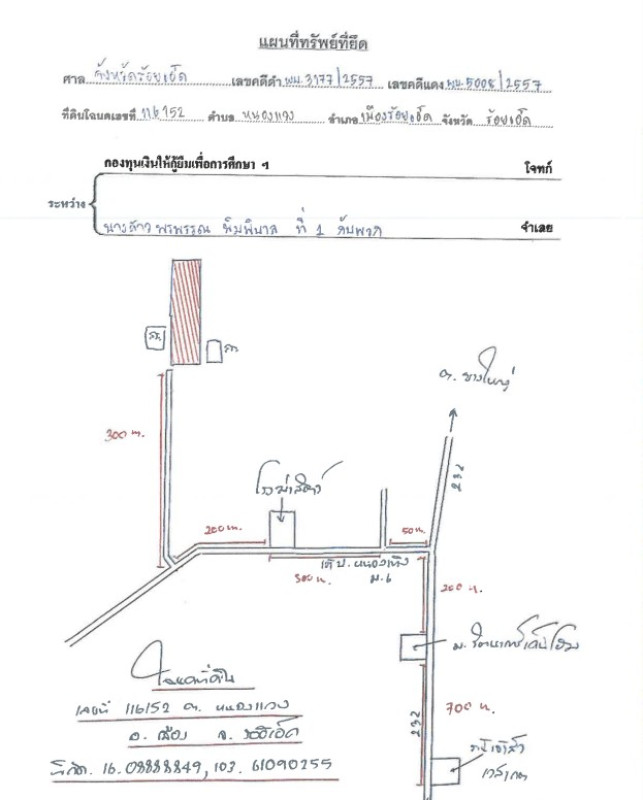 แผนที่ทรัพย์ที่ยึด
ศาล จังหวัดร้อยเอ็ด เลขคดีดำ ผบ.3177/2557 เลขคดีแดง ผบ.5008/2557
ที่ดินโฉนดเลขที่ 116152 ตำบล หนองแวง อำเภอ เมืองร้อยเอ็ด จังหวัด ร้อยเอ็ด
กองทุนเงินให้กู้ยืมเพื่อการศึกษา ฯ โจทก์
ระหว่าง
นางสาว พรพรรณ พิมพิบาล ที่ 1 กับพวก จำเลย
ต. ขวาวใหญ่
300 ม.
232
โรงฆ่าสัตว์
200 ม.
50 ม.
500 ม.
ม.6
200 ม.
232
700 ม.
โฉนดที่ดิน
เลขที่ 116152 ต. หนองแวง
อ. เมือง จ. ร้อยเอ็ด
พิกัด. 16.08888849, 103.61090255